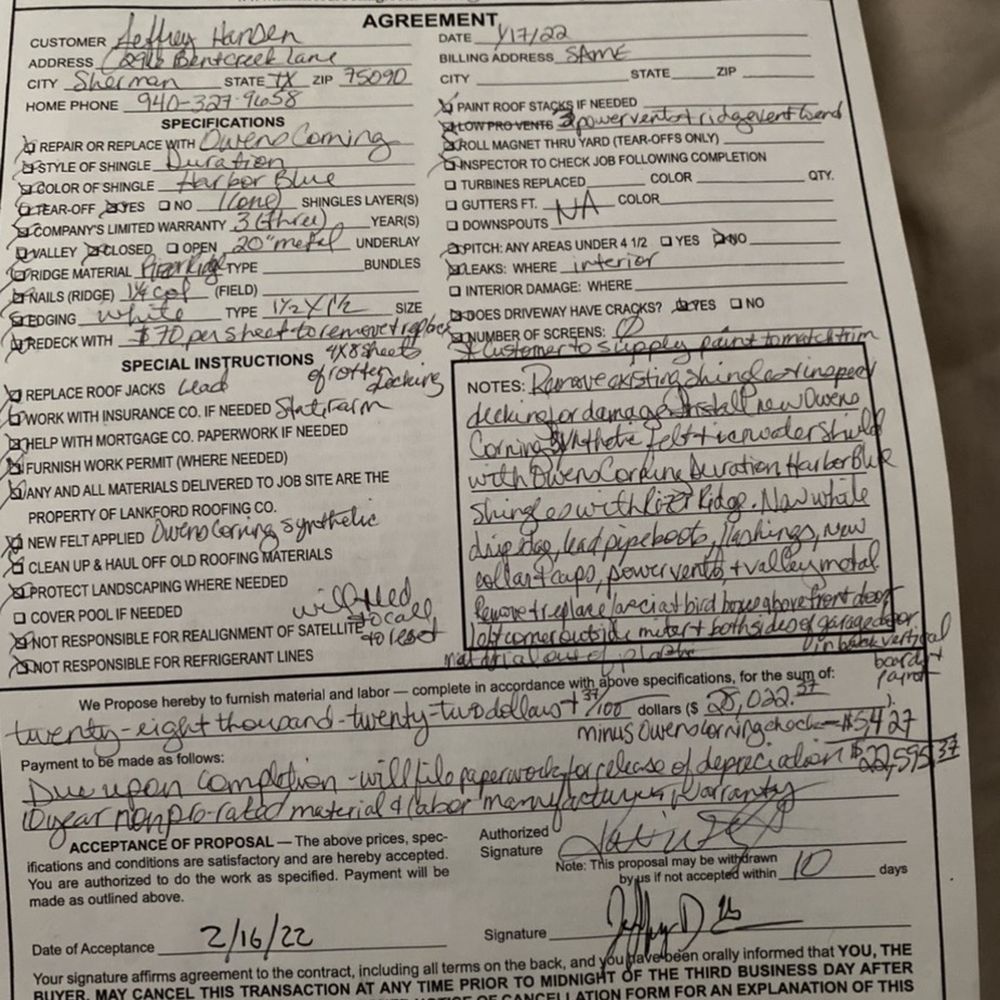 AGREEMENT
CUSTOMER Jeffrey Hansen
ADDRESS Bentcreek Lane
CITY Sherman STATE TX ZIP 75090
HOME PHONE 940-327-9658
SPECIFICATIONS
REPAIR OR REPLACE WITH Owens Corning
STYLE OF SHINGLE Duration
COLOR OF SHINGLE Harbor Blue
TEAR-OFF YES NO 1 (one) SHINGLES LAYER(S)
COMPANY'S LIMITED WARRANTY 3 (three) YEAR(S)
VALLEY CLOSED OPEN 20" metal UNDERLAY
RIDGE MATERIAL TYPE BUNDLES
NAILS (RIDGE) 1¼ (FIELD)
EDGING white TYPE 1½ X 1½ SIZE
REDECK WITH $70 per sheet to remove + replace
4x8 sheets
of rotten
decking
SPECIAL INSTRUCTIONS
REPLACE ROOF JACKS Lead
WORK WITH INSURANCE CO. IF NEEDED StateFarm
HELP WITH MORTGAGE CO. PAPERWORK IF NEEDED
FURNISH WORK PERMIT (WHERE NEEDED)
ANY AND ALL MATERIALS DELIVERED TO JOB SITE ARE THE
PROPERTY OF LANKFORD ROOFING CO.
NEW FELT APPLIED Owens Corning Synthetic
CLEAN UP & HAUL OFF OLD ROOFING MATERIALS
PROTECT LANDSCAPING WHERE NEEDED
COVER POOL IF NEEDED
NOT RESPONSIBLE FOR REALIGNMENT OF SATELLITE will need to call to reset
NOT RESPONSIBLE FOR REFRIGERANT LINES
DATE 1/17/22
BILLING ADDRESS SAME
CITY STATE ZIP
PAINT ROOF STACKS IF NEEDED
LOW PRO VENTS 3 power vents + ridge vent
ROLL MAGNET THRU YARD (TEAR-OFFS ONLY)
INSPECTOR TO CHECK JOB FOLLOWING COMPLETION
TURBINES REPLACED COLOR QTY.
GUTTERS FT. NA COLOR
DOWNSPOUTS
PITCH: ANY AREAS UNDER 4 1/2 YES NO
LEAKS: WHERE interior
INTERIOR DAMAGE: WHERE
DOES DRIVEWAY HAVE CRACKS? YES NO
NUMBER OF SCREENS:
* Customer to supply paint to match trim
NOTES: Remove existing shingles + inspect
decking for damage. Install new Owens
Corning synthetic felt + ice water shield
with Owens Corning Duration Harbor Blue
shingles with Rizer Ridge. New white
drip edge, lead pipe boots, flashings, new
collars + caps, power vents, + valley metal
Remove + replace fascia at bird boxes above front door
left corner outside + both sides of garage door
in back vertical
board +
paint
material out of
We Propose hereby to furnish material and labor — complete in accordance with above specifications, for the sum of:
twenty-eight thousand-twenty-two dollars + 37/100 dollars ($ 28,022.37 ).
minus Owens Corning check - $5427
Payment to be made as follows: $22,595.37
Due upon completion - will file paperwork for release of depreciation
10 year non pro-rated material & labor manufacturer warranty
ACCEPTANCE OF PROPOSAL — The above prices, spec-
ifications and conditions are satisfactory and are hereby accepted.
You are authorized to do the work as specified. Payment will be
made as outlined above.
Authorized
Signature
Note: This proposal may be withdrawn
by us if not accepted within 10 days
Date of Acceptance 2/16/22
Signature
Your signature affirms agreement to the contract, including all terms on the back, and you have been orally informed that YOU, THE
BUYER, MAY CANCEL THIS TRANSACTION AT ANY TIME PRIOR TO MIDNIGHT OF THE THIRD BUSINESS DAY AFTER
CANCELLATION FORM FOR AN EXPLANATION OF THIS